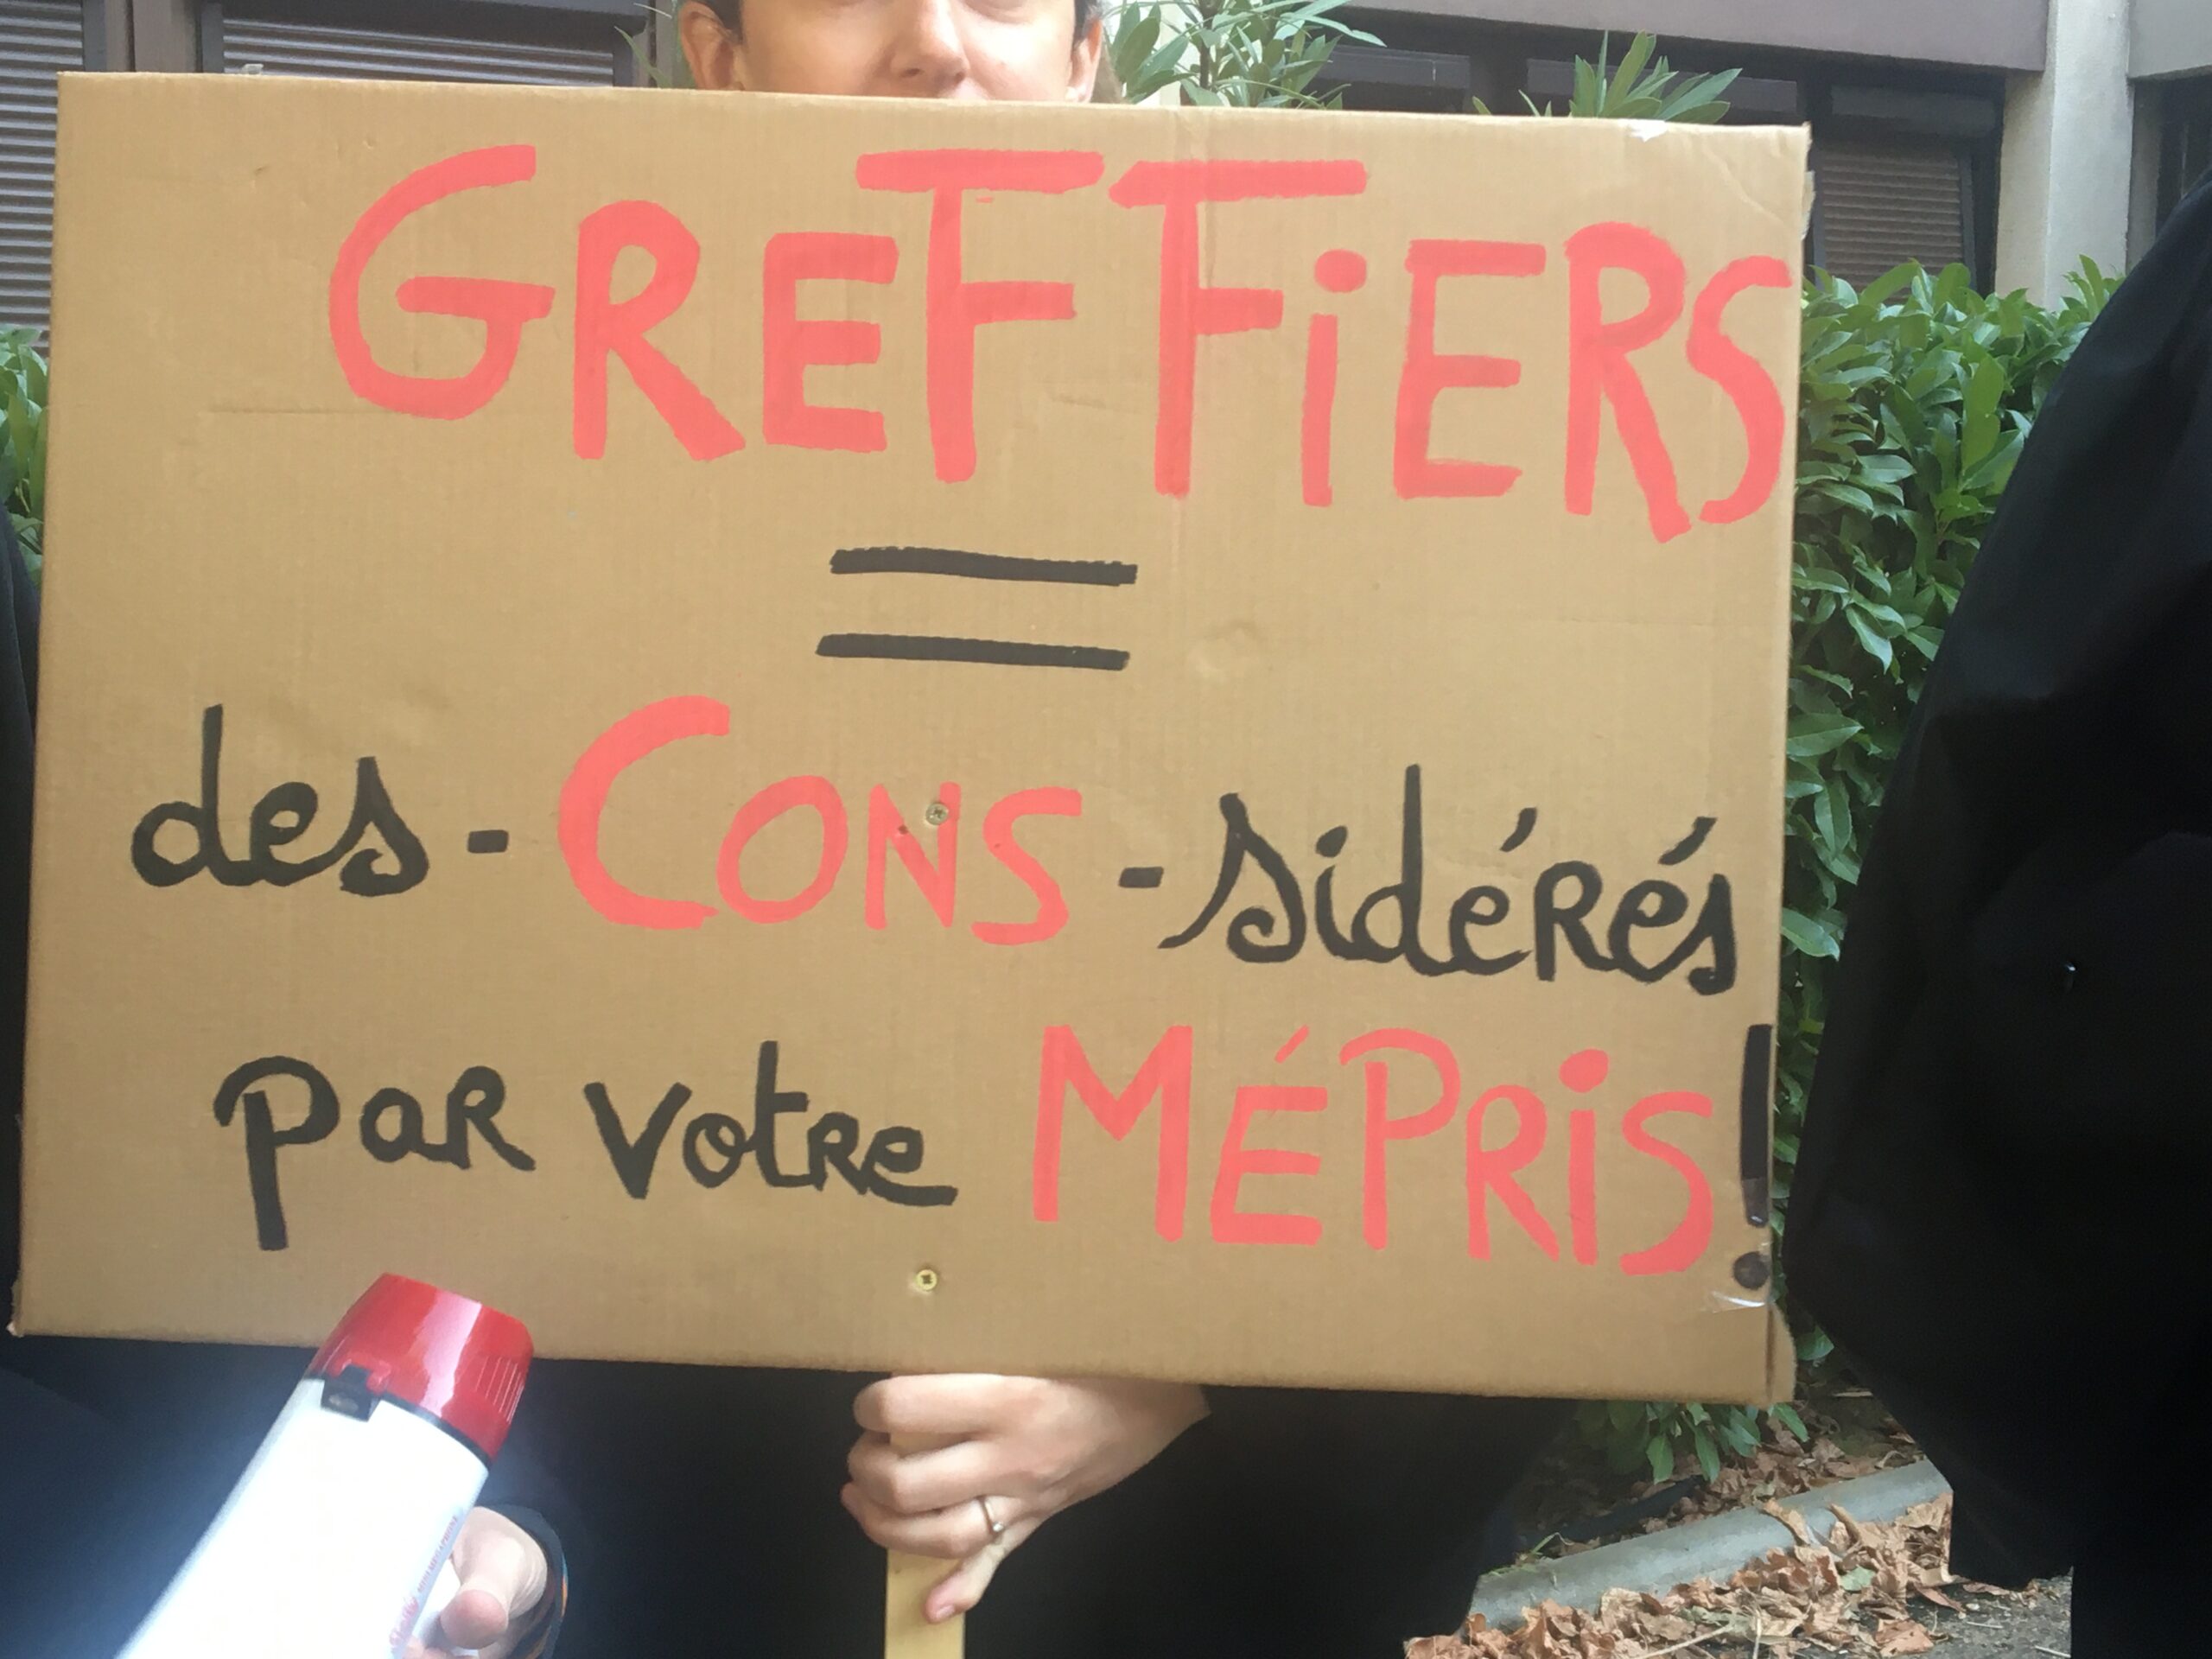 GREFFiERS
=
des-CONS-sidérés
par votre MÉPRiS!